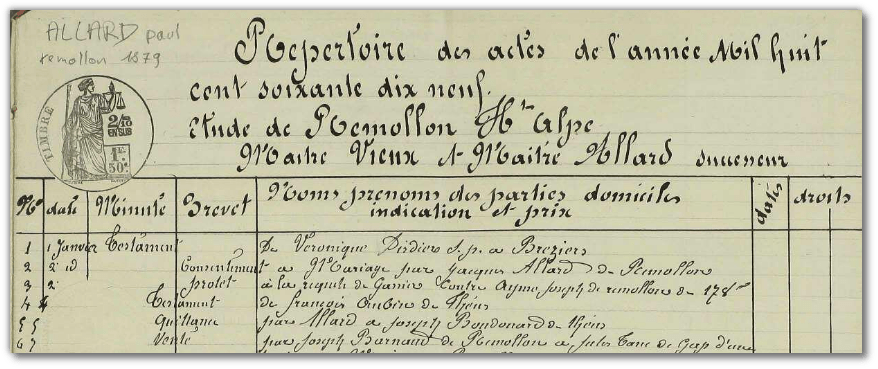 ALLARD paul
remollon 1879
Repertoire des actes de l'année Mil huit
cent soixante dix neuf.
Etude de Remollon Htes Alpe
Maitre Vieux et Maitre Allard successeur
TIMBRE
2/10
EN SUS
1F
50c
Nos date Minute Brevet Noms prenoms des parties domiciles
indication et prix dates droits
1 1 Janvier Testament De Veronique Didier s.p. a Breziers
2 2 id Consentement a Mariage par Jacques Allard de Remollon
3 2 protet à la requete de Garnier Contre Ayme Joseph de remollon de 178
4 4 Testament de françois de Théus
5 5 Quittance par Allard a Joseph de théus
6 7 Vente par Joseph Barnaud de Remollon a Jules Tane de Gap d'une